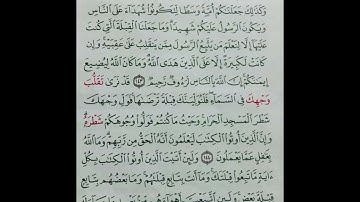 وَكَذَٰلِكَ جَعَلْنَٰكُمْ أُمَّةً وَسَطًا لِّتَكُونُوا۟ شُهَدَآءَ عَلَى ٱلنَّاسِ
وَيَكُونَ ٱلرَّسُولُ عَلَيْكُمْ شَهِيدًا وَمَا جَعَلْنَا ٱلْقِبْلَةَ ٱلَّتِى كُنتَ
عَلَيْهَآ إِلَّا لِنَعْلَمَ مَن يَتَّبِعُ ٱلرَّسُولَ مِمَّن يَنقَلِبُ عَلَىٰ عَقِبَيْهِ وَإِن
كَانَتْ لَكَبِيرَةً إِلَّا عَلَى ٱلَّذِينَ هَدَى ٱللَّهُ وَمَا كَانَ ٱللَّهُ لِيُضِيعَ
إِيمَٰنَكُمْ إِنَّ ٱللَّهَ بِٱلنَّاسِ لَرَءُوفٌ رَّحِيمٌ ١٤٣ قَدْ نَرَىٰ تَقَلُّبَ
وَجْهِكَ فِى ٱلسَّمَآءِ فَلَنُوَلِّيَنَّكَ قِبْلَةً تَرْضَىٰهَا فَوَلِّ وَجْهَكَ
شَطْرَ ٱلْمَسْجِدِ ٱلْحَرَامِ وَحَيْثُ مَا كُنتُمْ فَوَلُّوا۟ وُجُوهَكُمْ شَطْرَهُۥ
وَإِنَّ ٱلَّذِينَ أُوتُوا۟ ٱلْكِتَٰبَ لَيَعْلَمُونَ أَنَّهُ ٱلْحَقُّ مِن رَّبِّهِمْ وَمَا ٱللَّهُ
بِغَٰفِلٍ عَمَّا يَعْمَلُونَ ١٤٤ وَلَئِنْ أَتَيْتَ ٱلَّذِينَ أُوتُوا۟ ٱلْكِتَٰبَ بِكُلِّ
ءَايَةٍ مَّا تَبِعُوا۟ قِبْلَتَكَ وَمَآ أَنتَ بِتَابِعٍ قِبْلَتَهُمْ وَمَا بَعْضُهُم بِتَابِعٍ
قِبْلَةَ بَعْضٍ وَلَئِنِ ٱتَّبَعْتَ أَهْوَآءَهُم